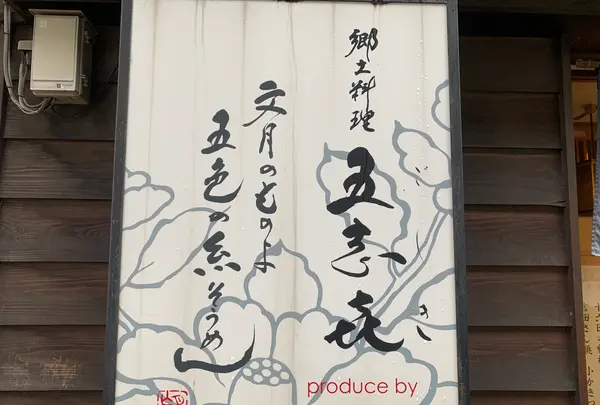 郷土料理
五志喜
ごしき
文月のものよ
五色の糸そうめん
produce by